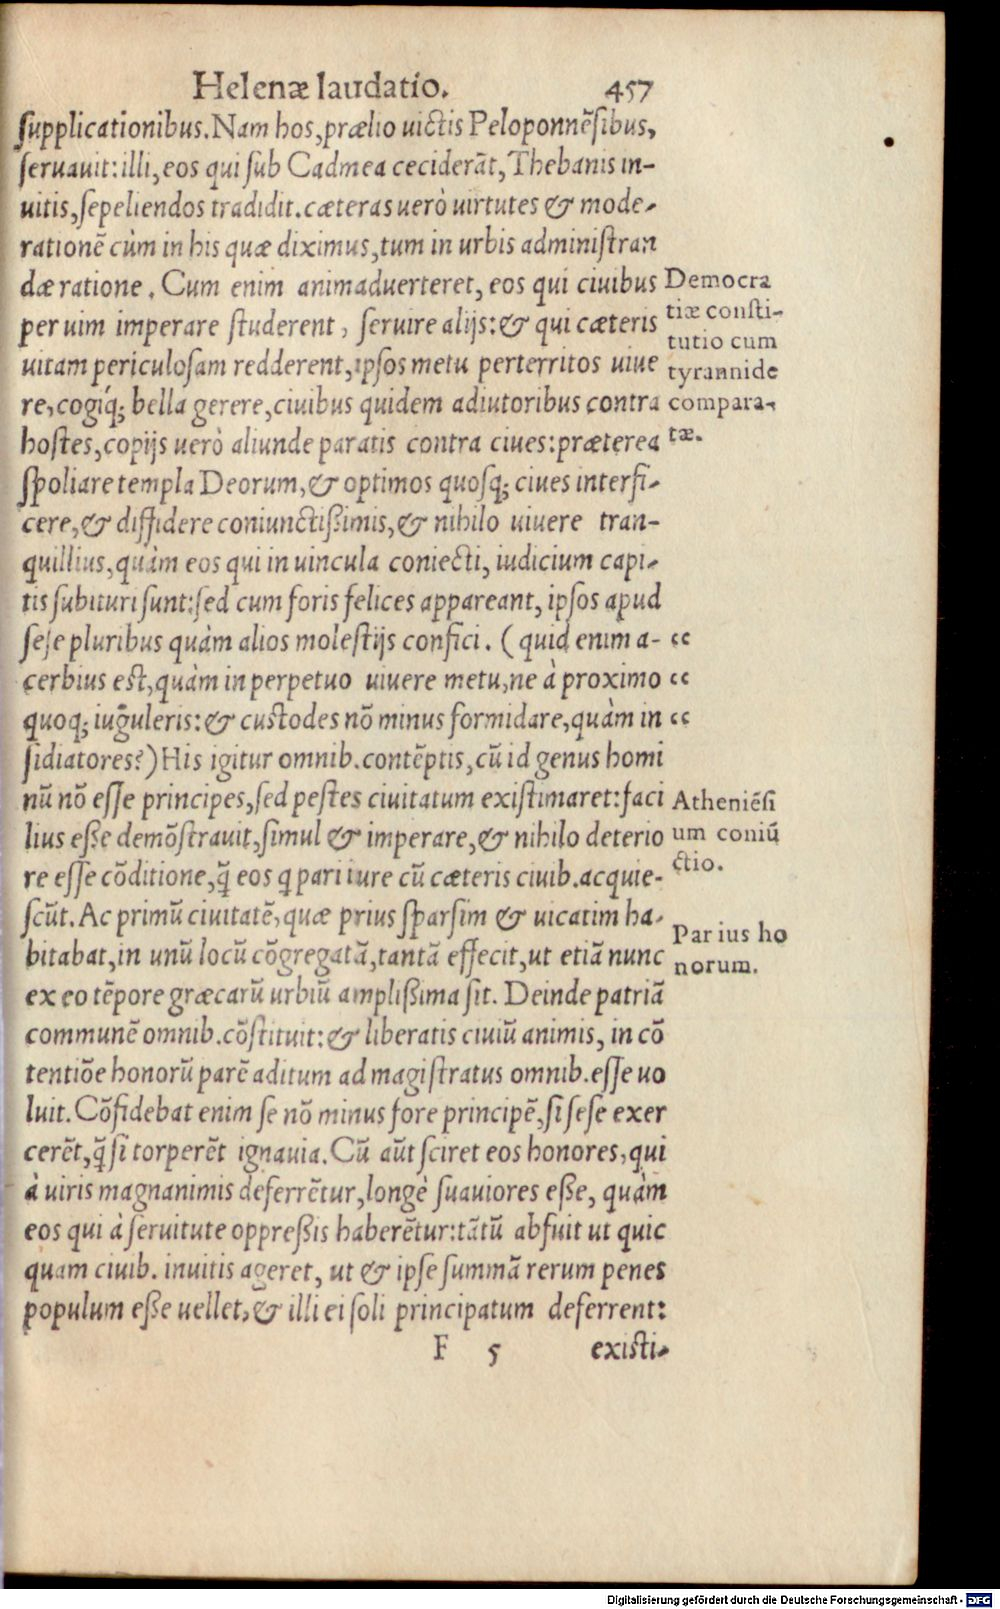 Helenæ laudatio. 457
supplicationibus. Nam hos, prælio uictis Peloponnēsibus,
seruauit: illi, eos qui sub Cadmea ceciderāt, Thebanis in-
uitis, sepeliendos tradidit. cæteras uerò uirtutes & mode-
rationē cùm in his quæ diximus, tum in urbis administran
dæ ratione. Cum enim animaduerteret, eos qui ciuibus
per uim imperare studerent, seruire alijs: & qui cæteris
uitam periculosam redderent, ipsos metu perterritos uiue
re, cogiq́; bella gerere, ciuibus quidem adiutoribus contra
hostes, copijs uerò aliunde paratis contra ciues: præterea
Democra
tiæ consti-
tutio cum
tyrannide
compara-
tæ.
spoliare templa Deorum, & optimos quosq; ciues interfi-
cere, & diffidere coniunctißimis, & nihilo uiuere tran-
quillius, quàm eos qui in uincula coniecti, iudicium capi-
tis subituri sunt: sed cum foris felices appareant, ipsos apud
sese pluribus quàm alios molestijs confici. (quid enim a- “
cerbius est, quàm in perpetuo uiuere metu, ne à proximo “
quoq; iuguleris: & custodes nō minus formidare, quàm in “
sidiatores?) His igitur omnib. contēptis, cū id genus homi
nū nō esse principes, sed pestes ciuitatum existimaret: faci
lius eße demōstrauit, simul & imperare, & nihilo deterio
re esse cōditione, q̄ eos q pari iure cū cæteris ciuib. acquie-
Atheniēsi
um coniū
ctio.
scūt. Ac primū ciuitatē, quæ prius sparsim & uicatim ha-
bitabat, in unū locū cōgregatā, tantā effecit, ut etiā nunc
Par ius ho
norum.
ex eo tēpore græcarū urbiū amplißima sit. Deinde patriā
communē omnib. cōstituit: & liberatis ciuiū animis, in cō
tentiōe honorū parē aditum ad magistratus omnib. esse uo
luit. Cōfidebat enim se nō minus fore principē, si sese exer
cerēt, q̄ si torperēt ignauia. Cū aūt sciret eos honores, qui
à uiris magnanimis deferrētur, longè suauiores eße, quàm
eos qui à seruitute oppreßis haberētur: tātū abfuit ut quic
quam ciuib. inuitis ageret, ut & ipse summā rerum penes
populum eße uellet, & illi ei soli principatum deferrent:
F 5 existi-
Digitalisierung gefördert durch die Deutsche Forschungsgemeinschaft - DFG